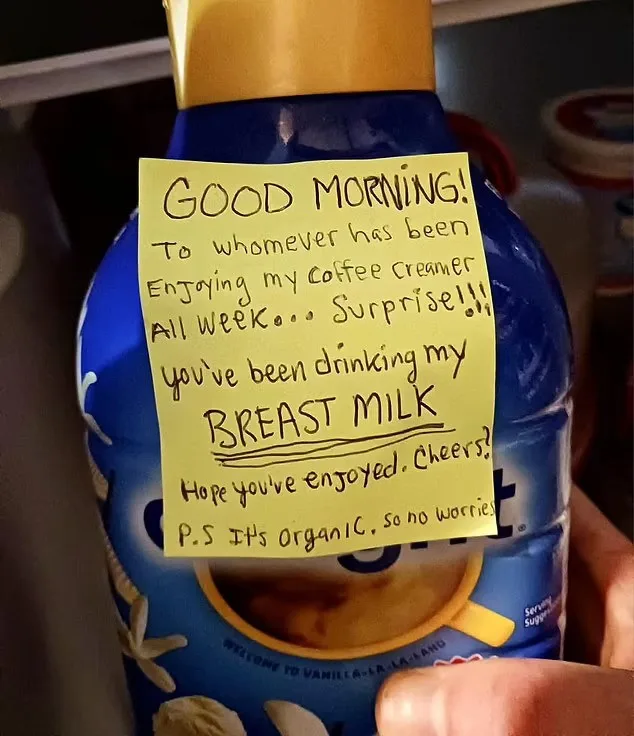 GOOD MORNING!
To whomever has been
Enjoying my coffee creamer
All WEEK... Surprise!!!
you've been drinking my
BREAST MILK
Hope you've enjoyed. Cheers?
P.S It's organic. so no worries
WELCOME TO VANILLA-LA-LA-LAND
Serving